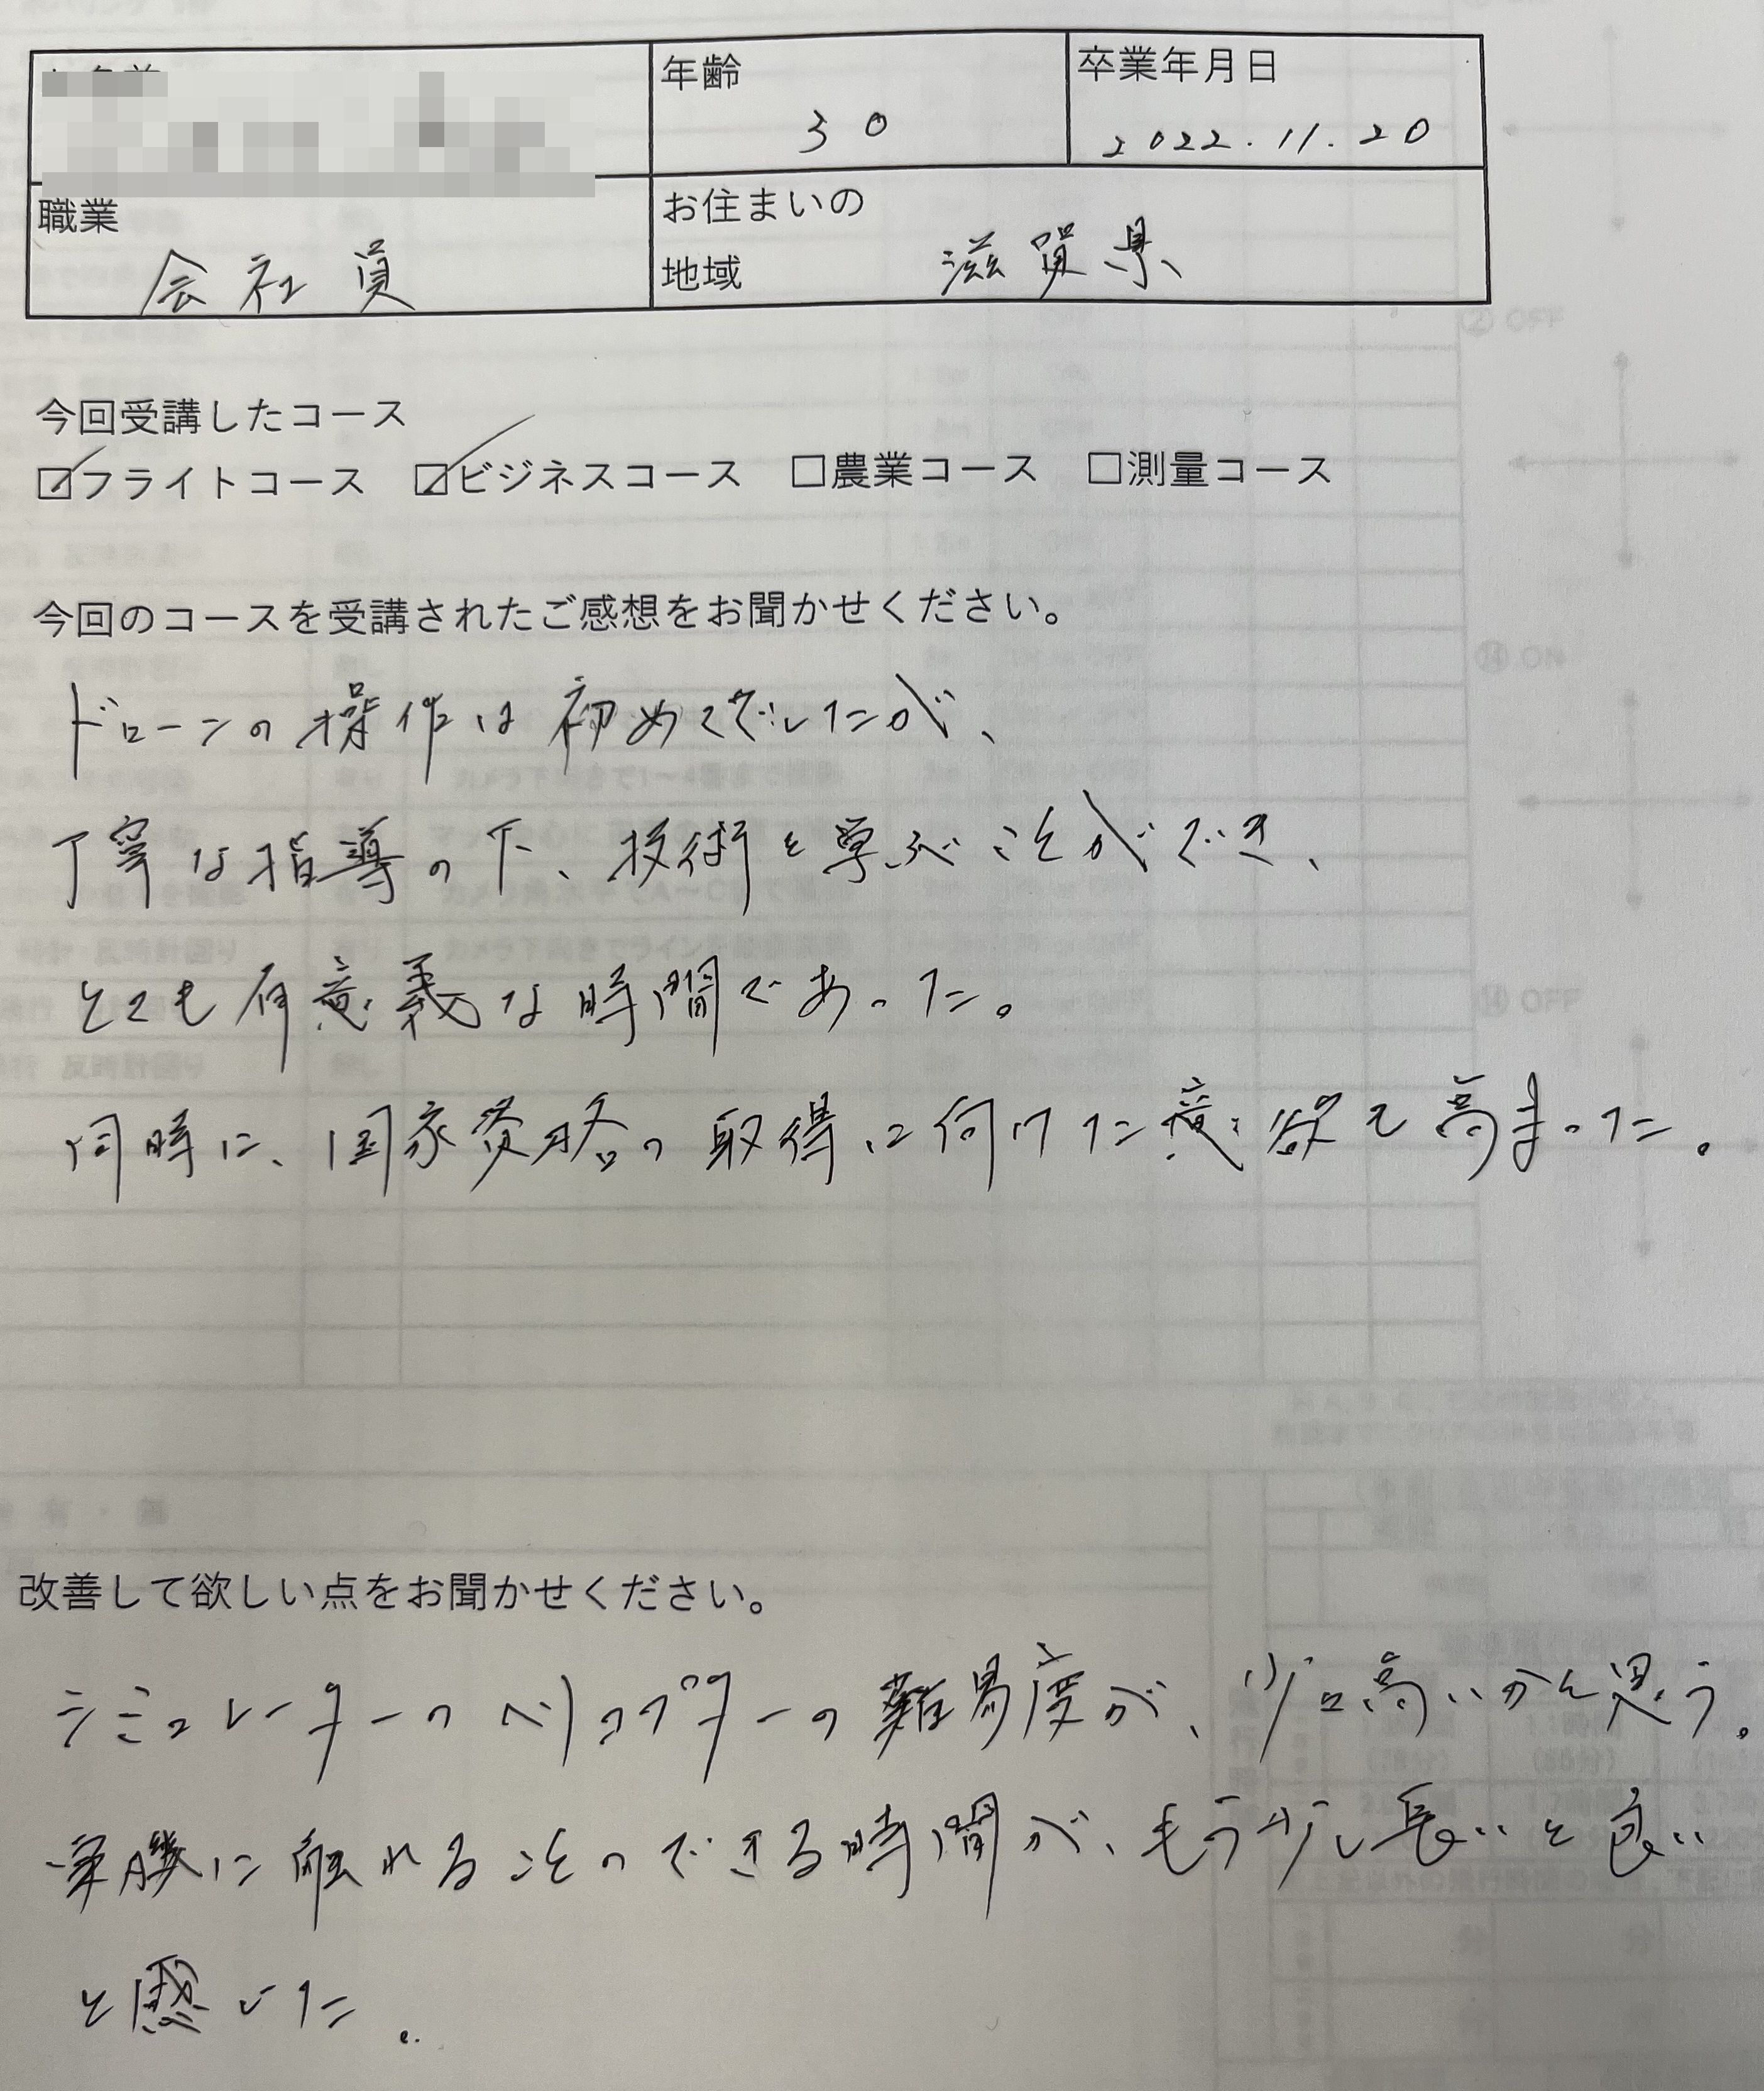 年齢
30
卒業年月日
2022.11.20
職業
会社員
お住まいの
地域
滋賀県
今回受講したコース
☑フライトコース ☑ビジネスコース □農業コース □測量コース
今回のコースを受講されたご感想をお聞かせください。
ドローンの操作は初めてでしたが、
丁寧な指導の下、技術を学ぶことができ、
とても有意義な時間であった。
同時に、国家資格の取得に向けた意欲も高まった。
改善して欲しい点をお聞かせください。
シミュレーターのヘリコプターの難易度が、少々高いかと思う。
実機に触れることのできる時間が、もう少し長いと良い
と感じた。